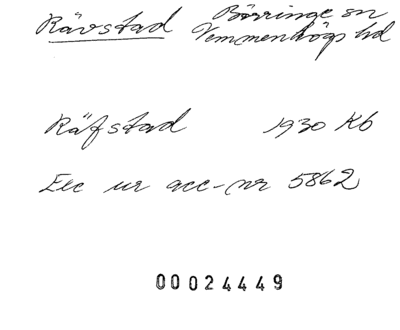 Rävstad Börringe sn
Vemmenhögs hd
Räfstad 1930 Kb
Exc ur acc-nr 5862
00024449